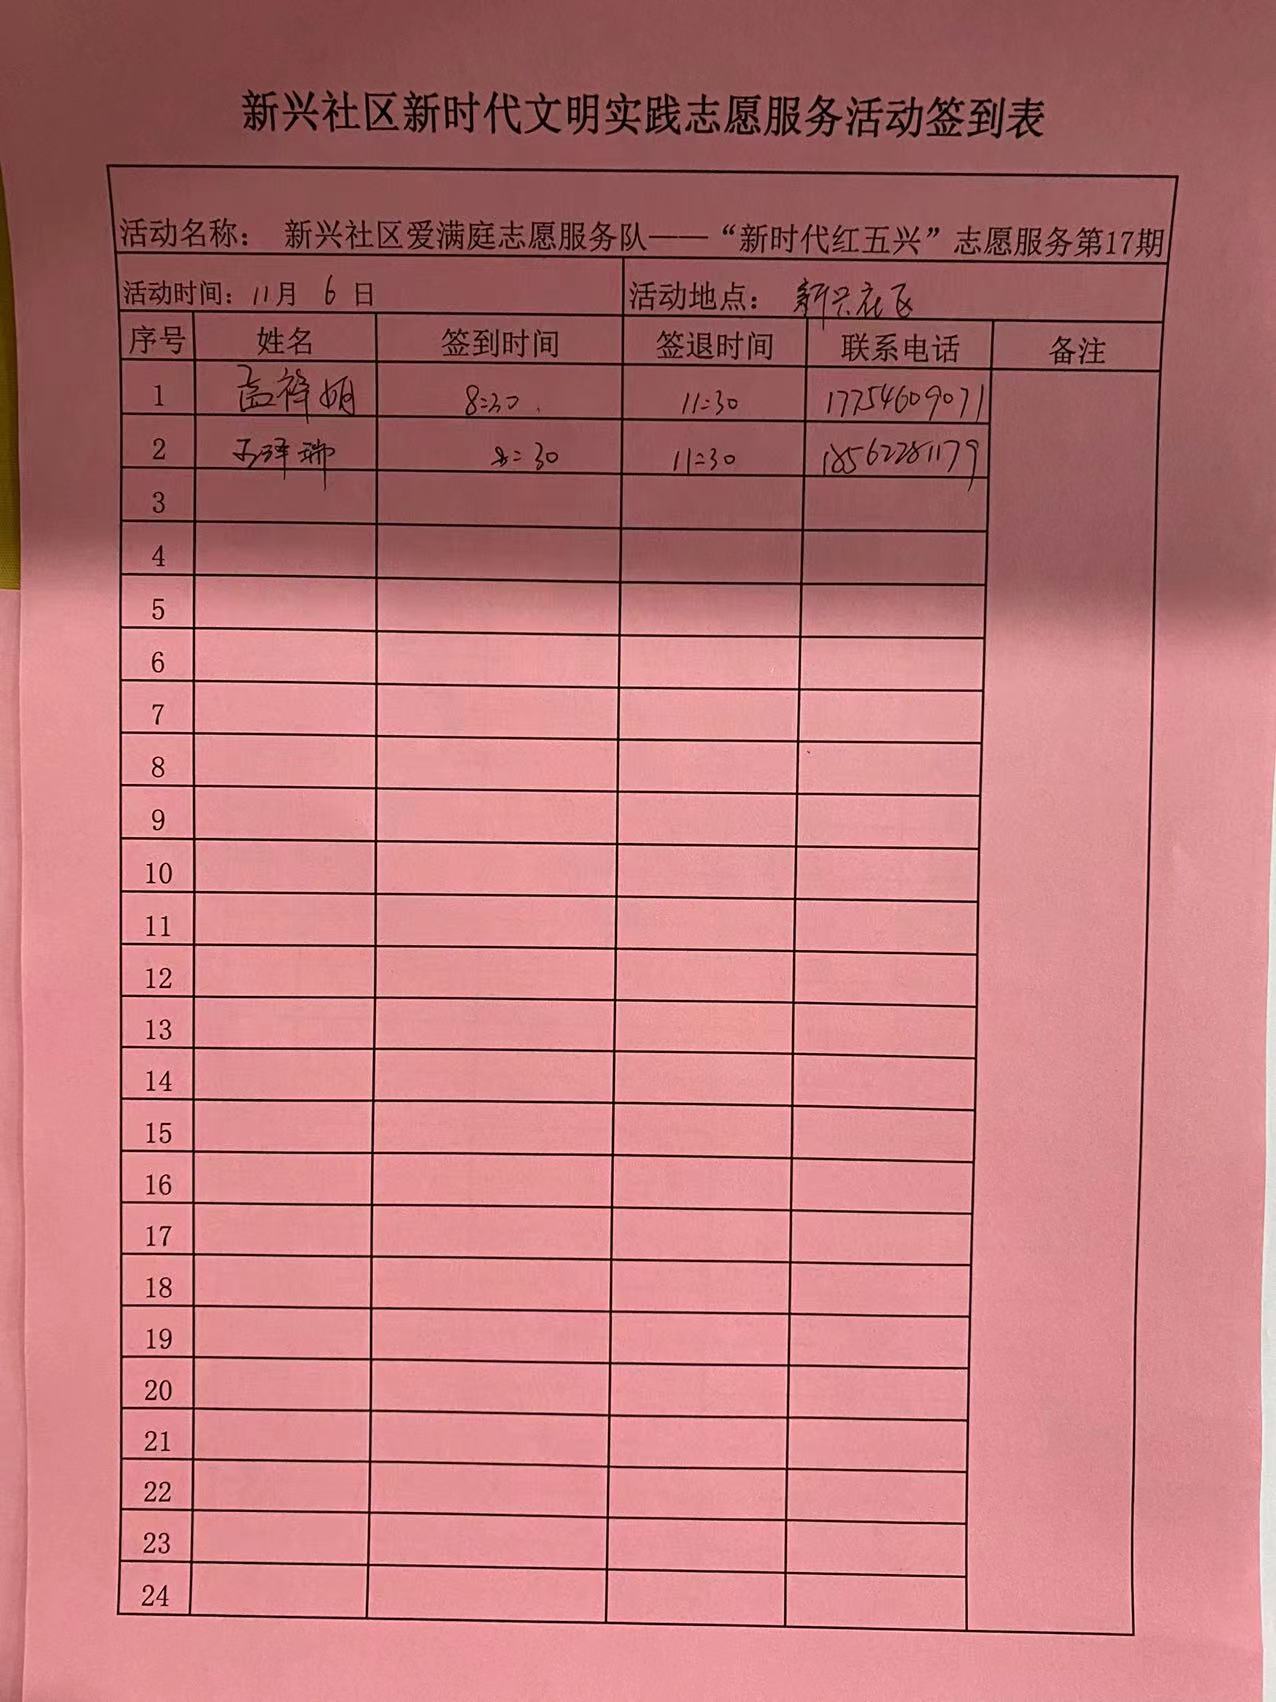 新兴社区新时代文明实践志愿服务活动签到表
活动名称： 新兴社区爱满庭志愿服务队——“新时代红五兴”志愿服务第17期
活动时间：11月 6 日 活动地点： 新兴社区
序号 姓名 签到时间 签退时间 联系电话 备注
1 孟祥娟 8:30 11:30 17754609071
2 王泽瑞 8:30 11:30 18562281179
3
4
5
6
7
8
9
10
11
12
13
14
15
16
17
18
19
20
21
22
23
24